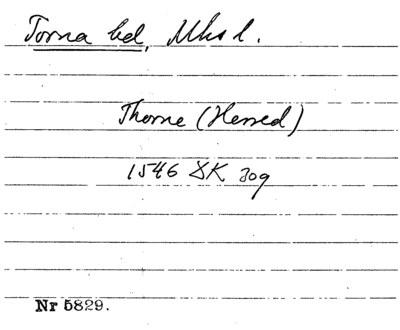 Torna hd, Mhs l.
Thorne (Herred)
1546 DK 309
Nr 5829.